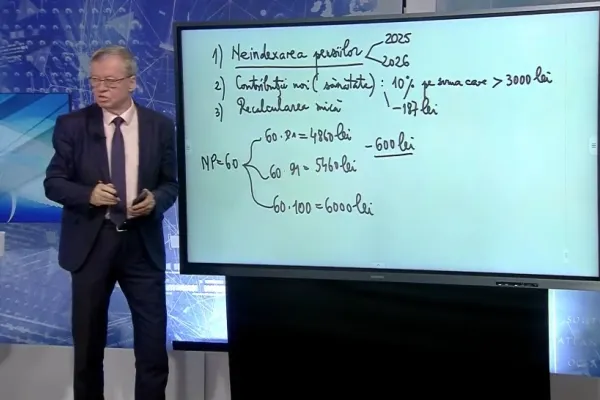 1) Neindexarea pensiilor
2025
2026
2) Contribuții noi (sănătate) : 10% pe suma care > 3000 lei
-187 lei
3) Recalcularea mică
NP=60
60 · 81 = 4860 lei
60 · 91 = 5460 lei
60 · 100 = 6000 lei
-600 lei